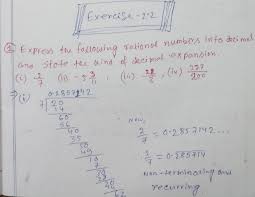 Exercise-2.2
① Express the following rational numbers into decimal
and state the kind of decimal expansion.
(i) 2/7 (ii) (iii) (iv) 427/200
→(i) 0.2857142
7 | 20
14
60
56
40
35
50
49
10
7
Now,
2/7 = 0.2857142...
2/7 = 0.285714
Non-terminating and
recurring